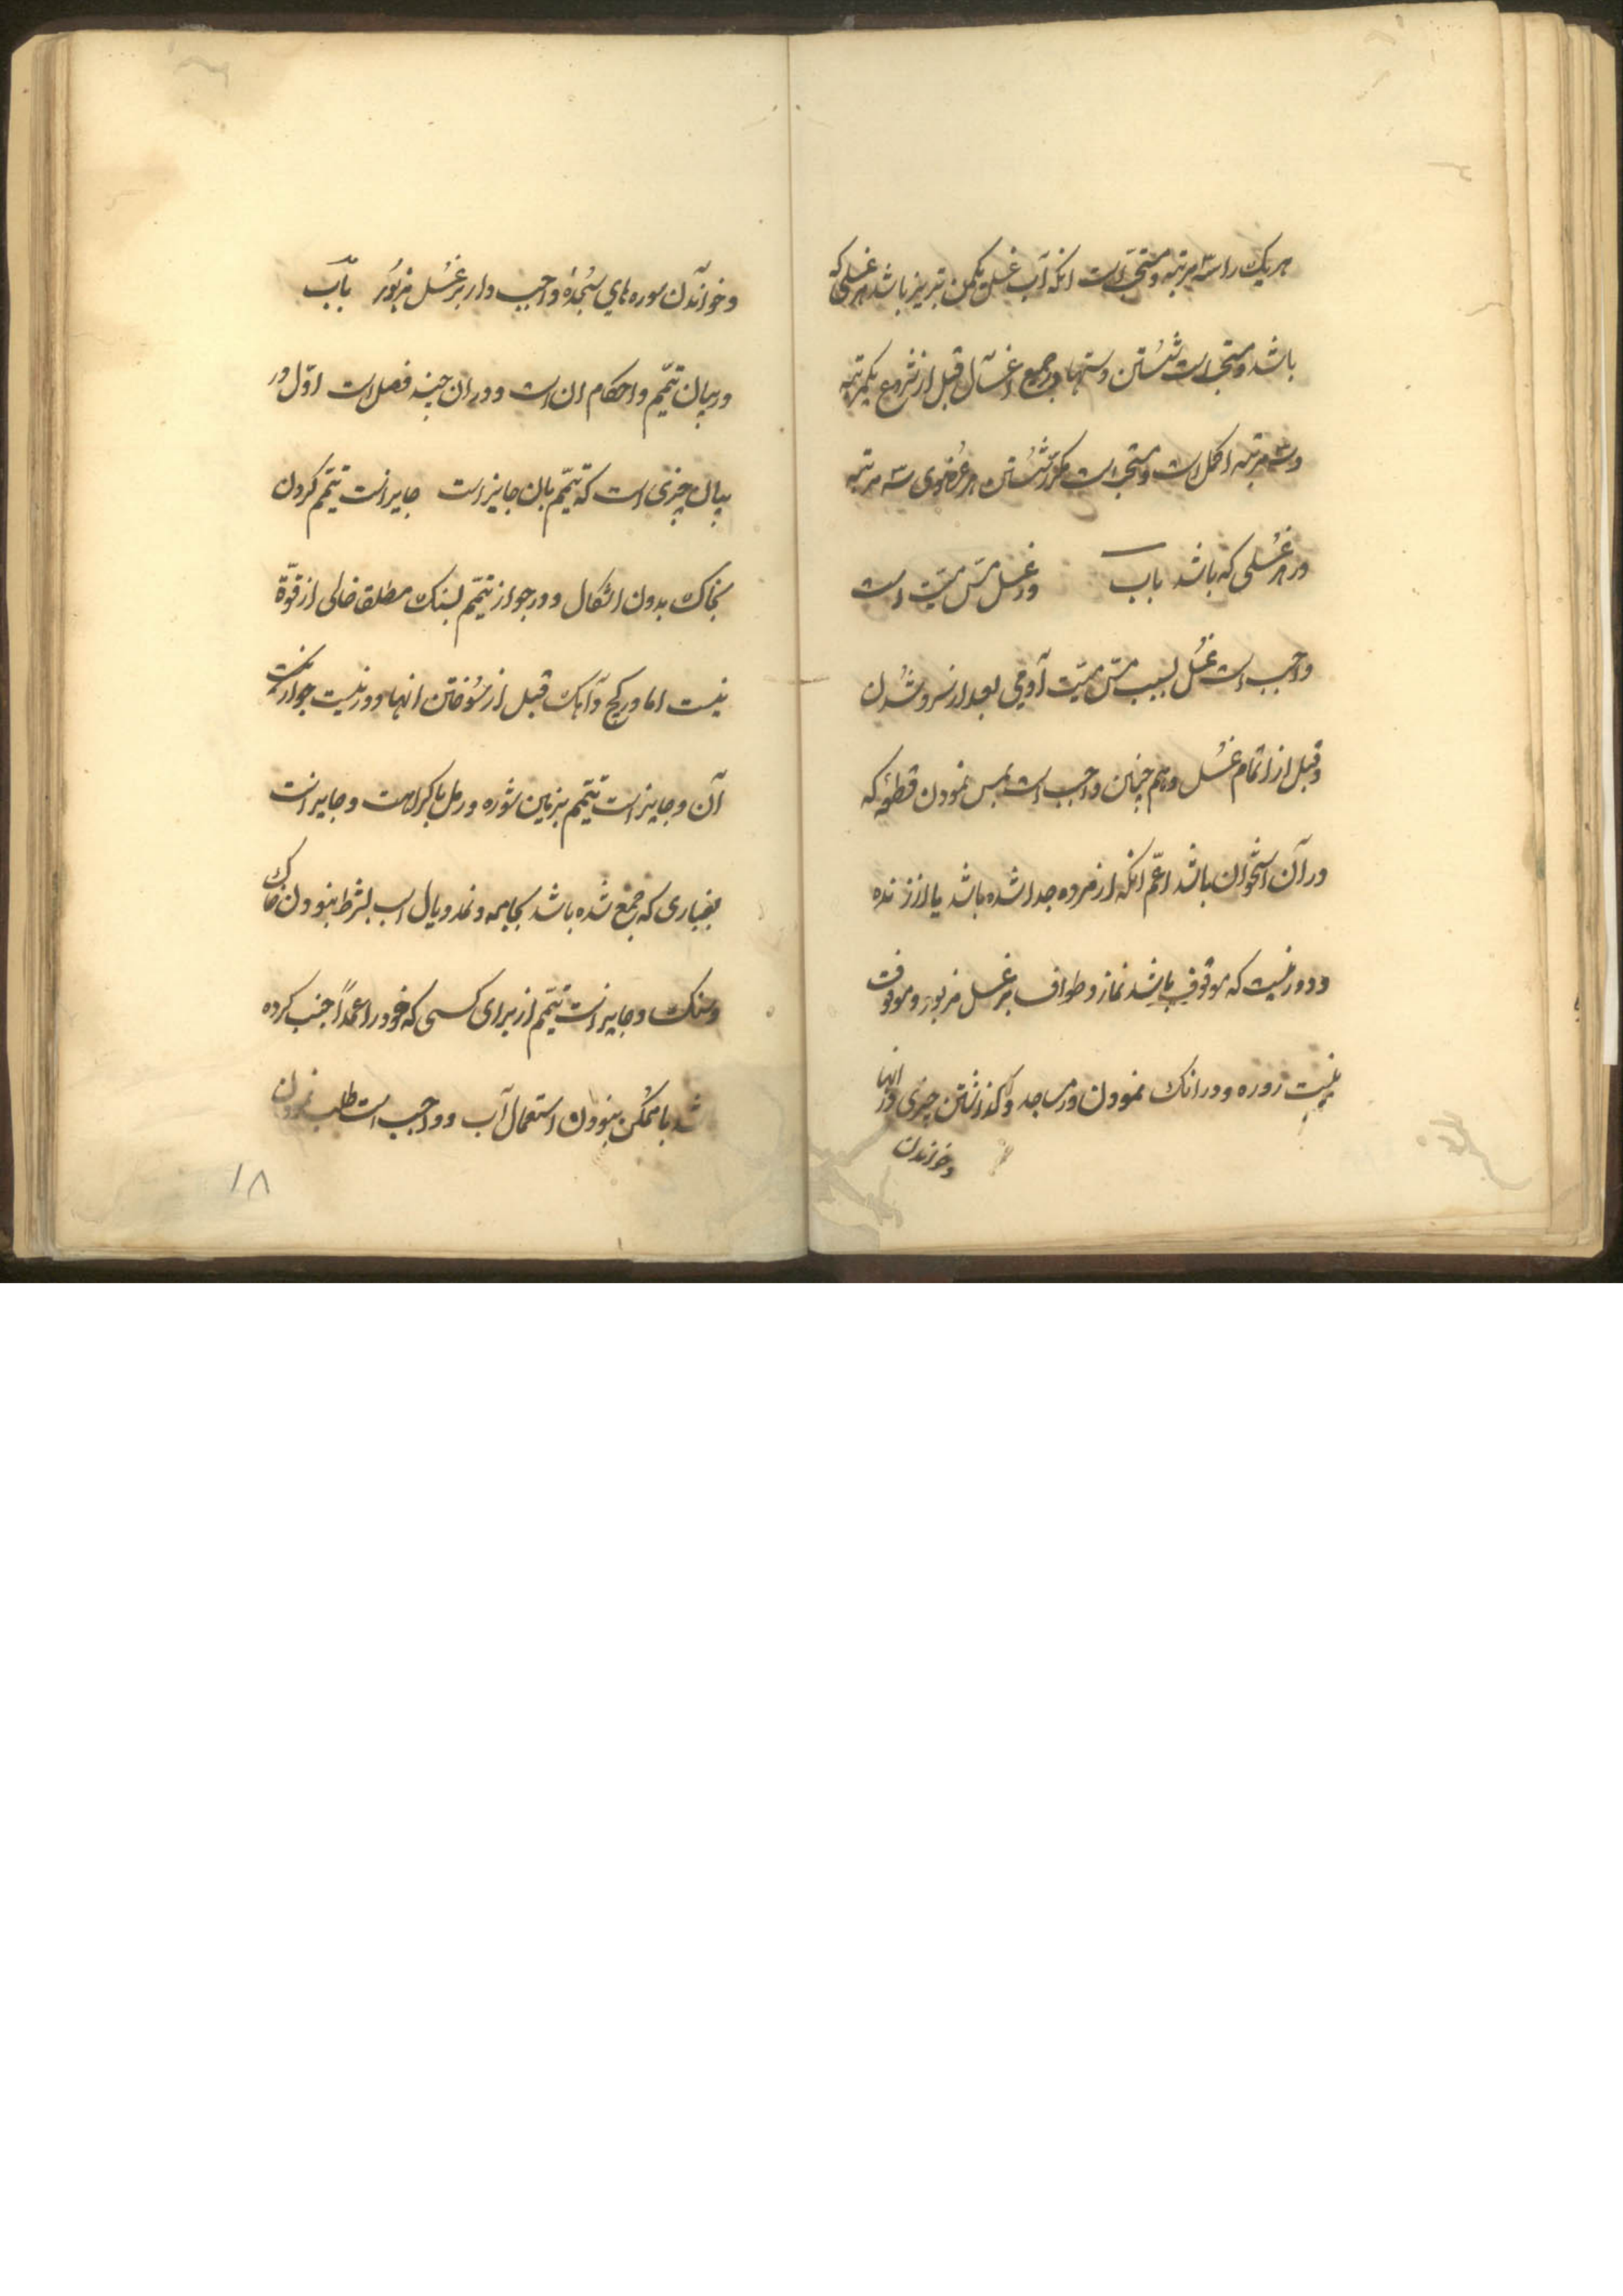 هر یک را سه مرتبه و مستحب است انکه آب غسل یکمن تبریز باشد هر غسلی که
باشد و مستحب است شستن دستها در جمیع اغسال قبل از شروع یکمرتبه
و سه مرتبه اکمل است و مستحب است مکرر شستن هر عضوی سه مرتبه
در هر غسلی که باشد باب در غسل مس میت است
واجب است غسل بسبب مس میت آدمی بعد از سرد شدن
و قبل از اتمام غسل و هم چنین واجب است بمس نمودن قطعه که
در آن استخوان باشد اعم انکه از مرده جدا شده باشد یا از زنده
و دور نیست که موقوف باشد نماز و طواف بر غسل مزبور و موقوف
نیست روزه و درانک نمودن در مساجد و گذاشتن چیزی در انها
و خواندن
و خواندن سوره های سجده واجب دار بر غسل مزبور باب
در بیان تیمم و احکام ان است و در ان چند فصل است اول در
بیان چیزی است که تیمم بان جایز است جایز است تیمم کردن
بخاک بدون اشکال و در جواز تیمم بسنک مطلق خالی از قوة
نیست اما در کچ و آهک قبل از سوختن انها دور نیست جواز تیمم
آن و جایز است تیمم بزمین شوره و رمل با کراهت و جایز است
بغباری که جمع شده باشد بجامه و نمد و یال اسب بشرط نبودن خاک
و سنک و جایز است تیمم از برای کسی که خود را عمداً جنب کرده
باشد با ممکن نبودن استعمال آب و واجب است طلب نمودن
۱۸